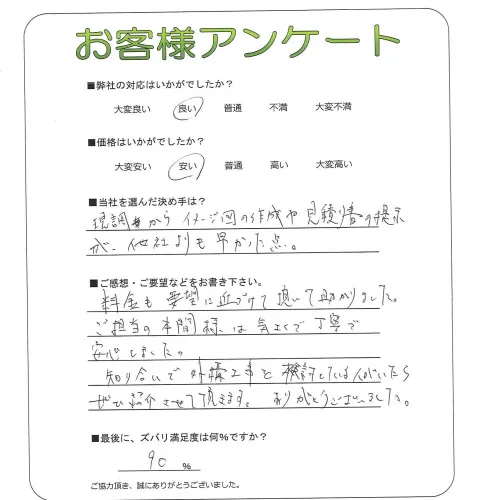 お客様アンケート
■弊社の対応はいかがでしたか?
大変良い 良い 普通 不満 大変不満
■価格はいかがでしたか?
大変安い 安い 普通 高い 大変高い
■当社を選んだ決め手は?
現調から イメージ図の作成や見積書の提示
が、他社よりも早かった点。
■ご感想・ご要望などをお書き下さい。
料金も要望に近づけて頂いて助かりました。
ご担当の本間様は気さくで丁寧で
安心しました。
知り合いで外構工事を検討している人がいたら
ぜひ紹介させて頂きます。ありがとうございました。
■最後に、ズバリ満足度は何%ですか?
90 %
ご協力頂き、誠にありがとうございました。